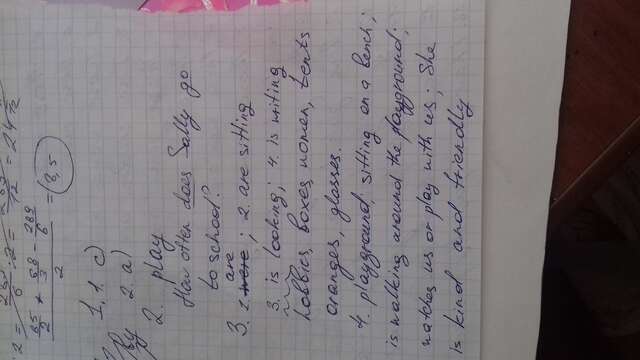 65/2 + 58/3 - 289/6
2
= 8,5
1. 1. c)
by 2. a)
2. play
How often does Sally go
to school?
are
3. 1. were ; 2. are sitting
3. is looking; 4. is writing
hobbies, boxes, women, tents
oranges, glasses.
4. playground; sitting on a bench;
is walking around the playground;
watches us or play with us; She
is kind and friendly